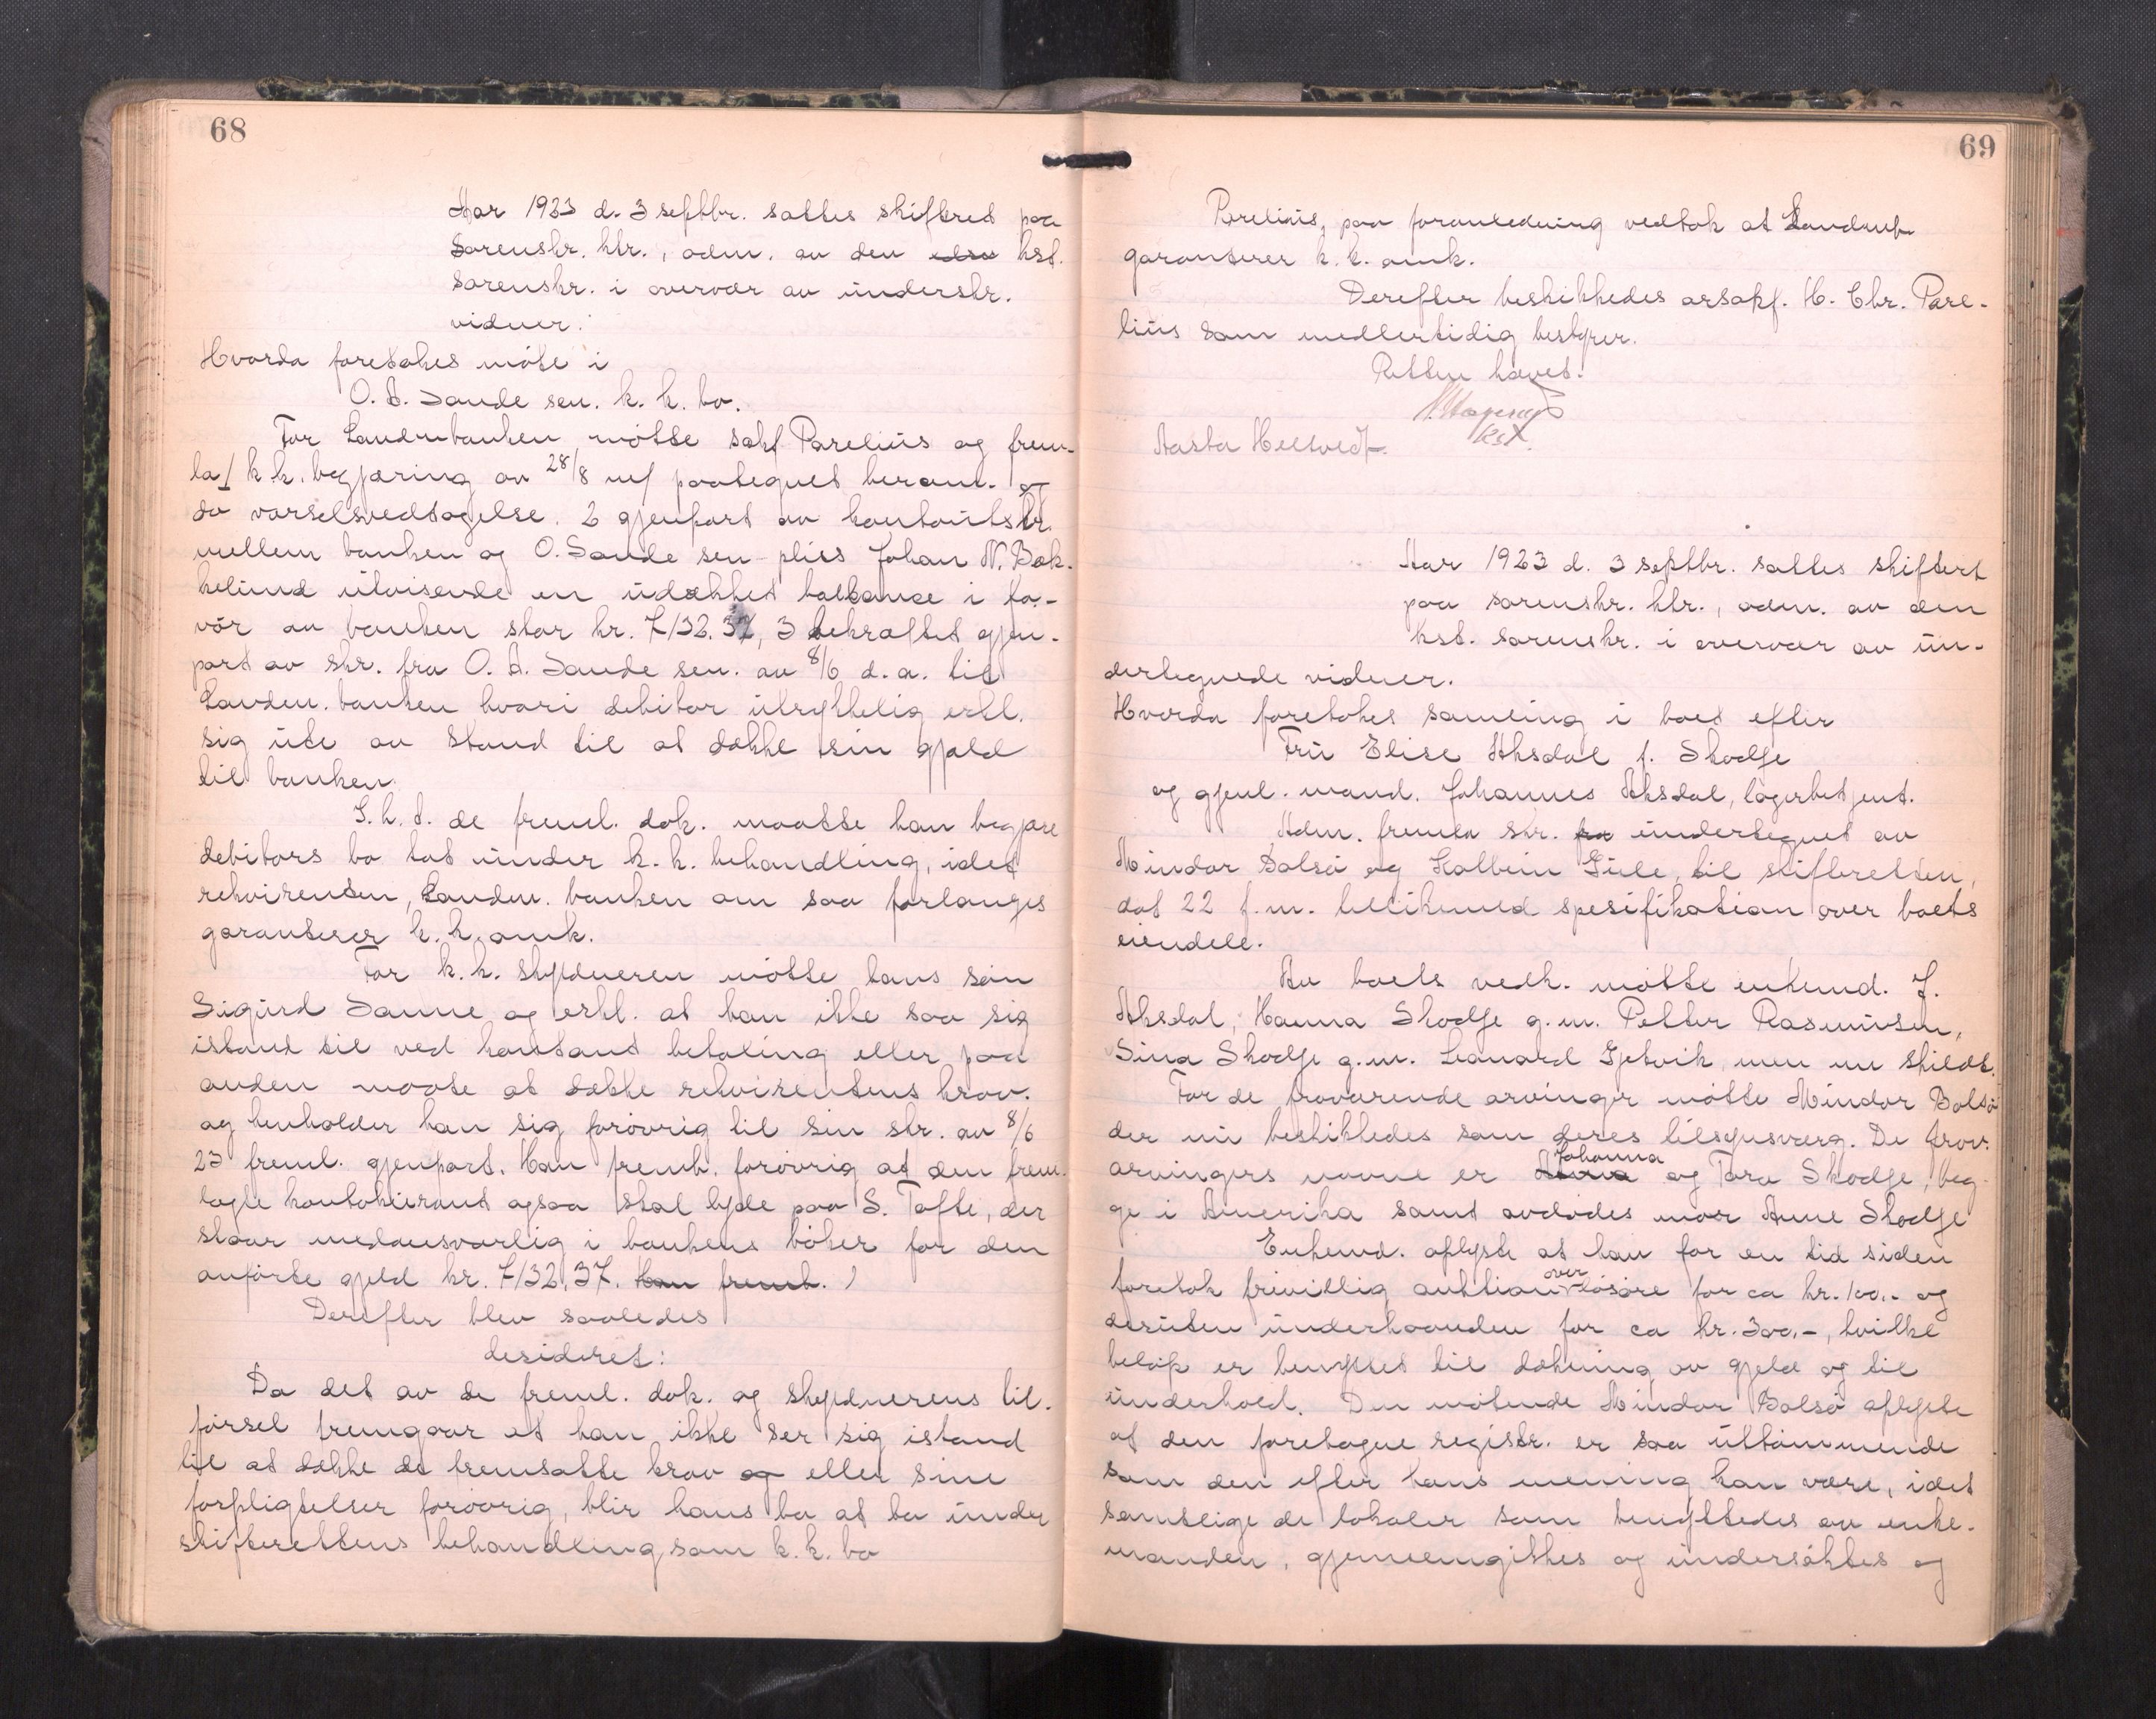 68
Aar 1923 d. 3 septbr. sattes skifteret paa
Sorenskr. ktr., adm. av den edsv kst.
sorenskr. i overvær av underskr.
vidner:
Hvorda foretokes møte i
O. A. Sande sen. k. k. bo.
For Landmbanken møtte sakf Parelius og frem-
la 1 k.k. begjæring av 28/8 m/ paategnet beram. og
do varselsvedtagelse. 2 gjenpart av kontoutskr.
mellem banken og O. Sande sen pliss Johan N. Bak-
kelund utvisende en udækket ballance i fa-
vör av banken stor kr. 7132.37, 3 bekræftet gjen-
part av skr. fra O. A. Sande sen. av 8/6 d.a. til
Landm. banken hvori debitor utrykkelig erkl.
sig ute av stand til at dække sin gjæld
til banken.
I. h. t. de freml. dok. maatte han begjære
debitors bo tat under k. k. behandling, idet
rekvirenten, Landm. banken om saa forlanges
garanterer k. k. omk.
For k. k. skyldneren møtte hans søn
Sigurd Sanne og erkl. at han ikke saa sig
istand til ved kontant betaling eller paa
anden maate at dække rekvirentens krav.
og henholder han sig forøvrig til sin skr. av 8/6
23 freml. gjenpart. Han fremh. forøvrig at den frem-
lagte kontokurant ogsaa skal lyde paa S. Tafte, der
staar medansvarlig i bankens bøker for den
anførte gjeld kr. 7132,37. Han fremh.
Derefter blev saaledes
desideret:
Da det av de freml. dok. og skyldnerens til-
førsel fremgaar at han ikke ser sig istand
til at dække de fremsatte krav og eller sine
forpligtelser forøvrig, blir hans bo at ta under
skifterettens behandling som k. k. bo
69
Parelius, paa foranledning vedtok at Landmb.
garanterer k. k. omk.
Derefter beskikkedes orsakf. H. Chr. Pare-
lius som midlertidig bestyrer.
Retten hævet.
kst.
Aasta Heltvedt
Aar 1923 d. 3 septbr. sattes skiftert
paa sorenskr. ktr., adm. av den
kst. sorenskr. i overvær av un-
dertegnede vidner.
Hvorda foretokes samling i boet efter
Fru Elise Aksdal f. Skodje
og gjenl. mand. Johannes Aksdal, lagerbetjent.
Adm. fremla skr. fra undertegnet av
Mindor Balsø og Kolbein Giile, til skifteretten,
dat 22 f.m. tillikemed spesifikation over boets
eiendele.
Av boets vedk. møtte enkemd. J.
Aksdal, Hanna Skodje g.m. Petter Rasmussen,
Sina Skodje g.m. Leonard Gjelvik, men nu skildt.
For de fraværende arvinger møtte Mindor Balsø
der nu beskikkedes som deres tilsynsværg. De frav.
arvingers navne er Anna Johanna og Tora Skodje, beg-
ge i Amerika samt avdødes mor Anne Skodje
Enkemd. oplyste at han for en tid siden
foretok frivillig auktion over løsøre for ca kr. 100.- og
desuten underhaanden for ca kr. 300.-, hvilke
beløp er benyttet til dækning av gjeld og til
underhold. Den møtende Mindor Balsø oplyste
at den foretagne registr. er saa uttømmende
som den efter hans mening kan være, idet
samtlige de lokaler som benyttedes av enke-
manden, gjennemgikkes og undersøktes og